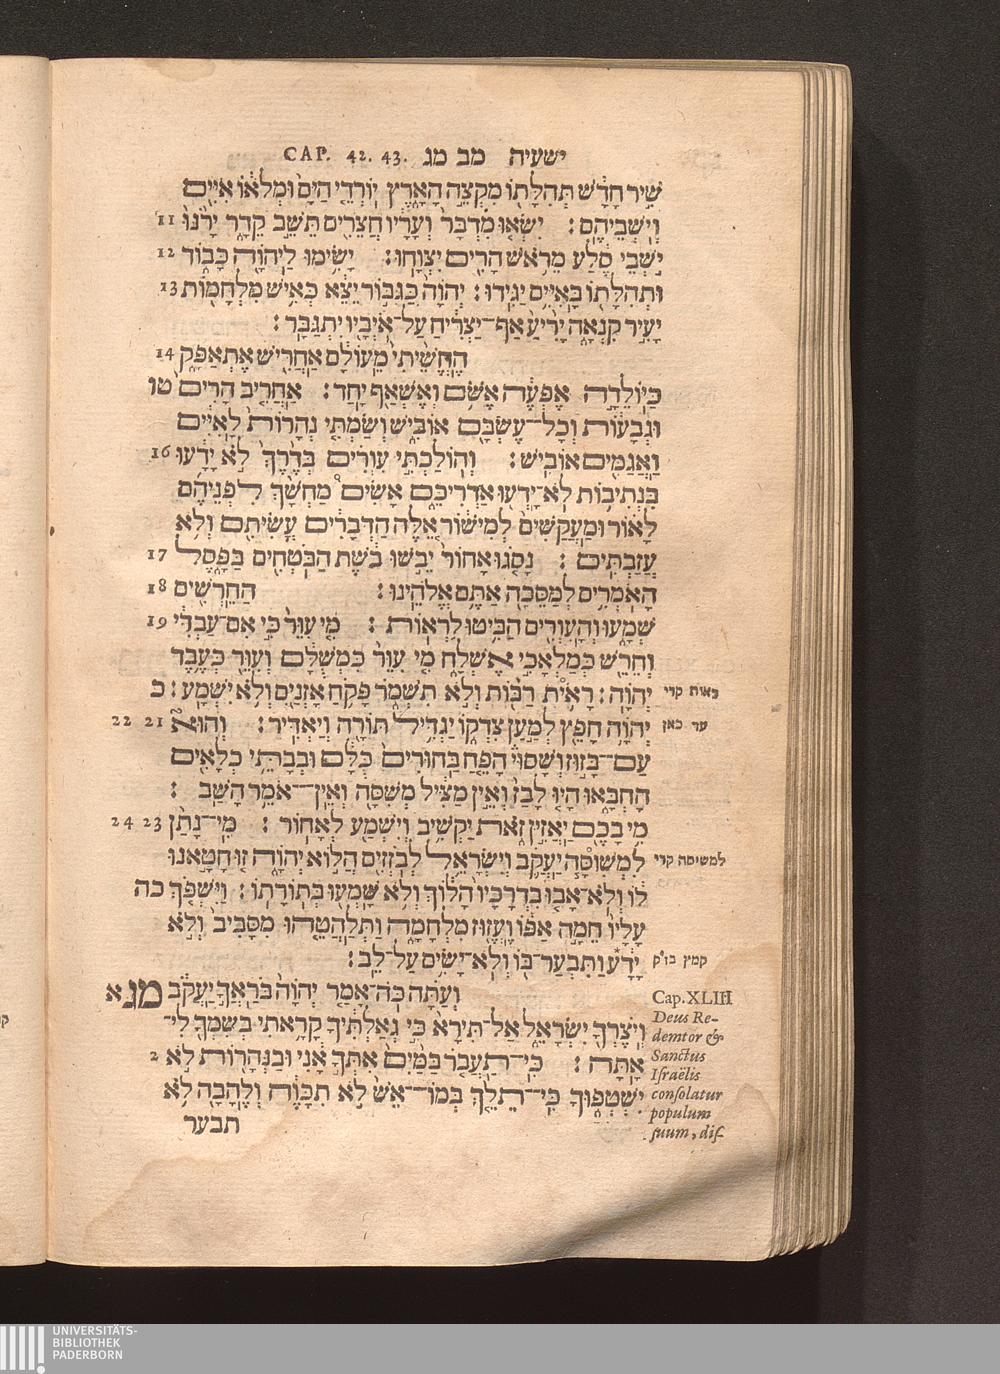 ישעיה מב מג CAP. 42. 43.
שִׁיר חָדָשׁ תְּהִלָּתוֹ מִקְצֵה הָאָרֶץ יוֹרְדֵי הַיָּם וּמְלֹאוֹ אִיִּים
וְיֹשְׁבֵיהֶם : יִשְׂאוּ מִדְבָּר וְעָרָיו חֲצֵרִים תֵּשֵׁב קֵדָר יָרֹנּוּ 11
יֹשְׁבֵי סֶלַע מֵרֹאשׁ הָרִים יִצְוָחוּ : יָשִׂימוּ לַיהוָה כָּבוֹד 12
וּתְהִלָּתוֹ בָּאִיִּים יַגִּידוּ : יְהוָה כַּגִּבּוֹר יֵצֵא כְּאִישׁ מִלְחָמוֹת 13
יָעִיר קִנְאָה יָרִיעַ אַף־יַצְרִיחַ עַל־אֹיְבָיו יִתְגַּבָּר :
הֶחֱשֵׁיתִי מֵעוֹלָם אַחֲרִישׁ אֶתְאַפָּק 14
כַּיּוֹלֵדָה אֶפְעֶה אֶשֹּׁם וְאֶשְׁאַף יָחַד : אַחֲרִיב הָרִים טו
וּגְבָעוֹת וְכָל־עֶשְׂבָּם אוֹבִישׁ וְשַׂמְתִּי נְהָרוֹת לָאִיִּים
וַאֲגַמִּים אוֹבִישׁ : וְהוֹלַכְתִּי עִוְרִים בְּדֶרֶךְ לֹא יָדָעוּ 16
בִּנְתִיבוֹת לֹא־יָדְעוּ אַדְרִיכֵם אָשִׂים מַחְשָׁךְ לִפְנֵיהֶם
לָאוֹר וּמַעֲקַשִּׁים לְמִישׁוֹר אֵלֶּה הַדְּבָרִים עֲשִׂיתִם וְלֹא
עֲזַבְתִּים : נָסֹגוּ אָחוֹר יֵבֹשׁוּ בֹשֶׁת הַבֹּטְחִים בַּפָּסֶל 17
הָאֹמְרִים לְמַסֵּכָה אַתֶּם אֱלֹהֵינוּ : הַחֵרְשִׁים 18
שְׁמָעוּ וְהָעִוְרִים הַבִּיטוּ לִרְאוֹת : מִי עִוֵּר כִּי אִם־עַבְדִּי 19
וְחֵרֵשׁ כְּמַלְאָכִי אֶשְׁלָח מִי עִוֵּר כִּמְשֻׁלָּם וְעִוֵּר כְּעֶבֶד
יְהוָה : רָאִית רַבּוֹת וְלֹא תִשְׁמֹר פָּקֹחַ אָזְנַיִם וְלֹא יִשְׁמָע : כ ראות קרי
יְהוָה חָפֵץ לְמַעַן צִדְקוֹ יַגְדִּיל תּוֹרָה וְיַאְדִּיר : וְהוּא 21 22 עד כאן
עַם־בָּזוּז וְשָׁסוּי הָפֵחַ בַּחוּרִים כֻּלָּם וּבְבָתֵּי כְלָאִים
הָחְבָּאוּ הָיוּ לָבַז וְאֵין מַצִּיל מְשִׁסָּה וְאֵין־אֹמֵר הָשַׁב :
מִי בָכֶם יַאֲזִין זֹאת יַקְשִׁיב וְיִשְׁמַע לְאָחוֹר : מִי־נָתַן 23 24
לִמְשׁוֹסָּה יַעֲקֹב וְיִשְׂרָאֵל לְבֹזְזִים הֲלוֹא יְהוָה זוּ חָטָאנוּ למשיסה קרי
לוֹ וְלֹא־אָבוּ בִדְרָכָיו הָלוֹךְ וְלֹא שָׁמְעוּ בְּתוֹרָתוֹ : וַיִּשְׁפֹּךְ כה
עָלָיו חֵמָה אַפּוֹ וֶעֱזוּז מִלְחָמָה וַתְּלַהֲטֵהוּ מִסָּבִיב וְלֹא
יָדָע וַתִּבְעַר־בּוֹ וְלֹא־יָשִׂים עַל־לֵב : קמץ בז״ק
וְעַתָּה כֹּה־אָמַר יְהוָה בֹּרַאֲךָ יַעֲקֹב מג א
וְיֹצֶרְךָ יִשְׂרָאֵל אַל־תִּירָא כִּי גְאַלְתִּיךָ קָרָאתִי בְשִׁמְךָ לִי־
אָתָּה : כִּי־תַעֲבֹר בַּמַּיִם אִתְּךָ אָנִי וּבַנְּהָרוֹת לֹא 2
יִשְׁטְפוּךָ כִּי־תֵלֵךְ בְּמוֹ־אֵשׁ לֹא תִכָּוֶה וְלֶהָבָה לֹא
תבער
Cap. XLIII
Deus Re-
demtor &
Sanctus
Israëlis
consolatur
populum
suum, dis-
UNIVERSITÄTS-
BIBLIOTHEK
PADERBORN